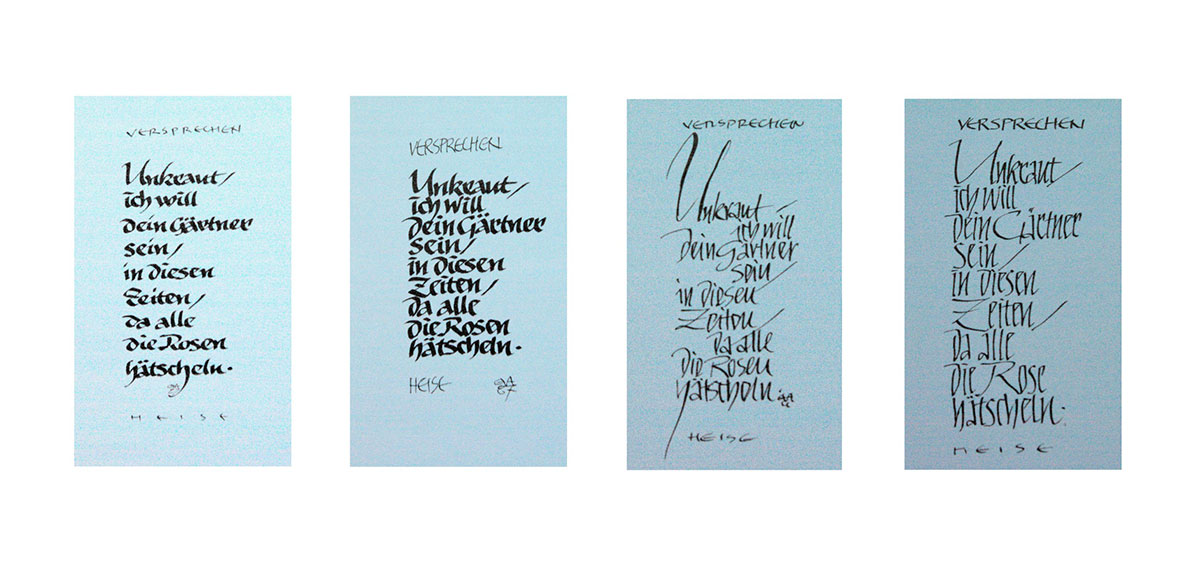 VERSPRECHEN
Unkraut/
ich will
dein Gärtner
sein/
in diesen
Zeiten/
da alle
die Rosen
hätscheln.
HEISE
VERSPRECHEN
Unkraut/
ich will
dein Gärtner
sein/
in diesen
Zeiten/
da alle
die Rosen
hätscheln.
HEISE
VERSPRECHEN
Unkraut/
ich will
dein Gärtner
sein/
in diesen
Zeiten/
da alle
die Rosen
hätscheln.
HEISE
VERSPRECHEN
Unkraut/
ich will
dein Gärtner
sein/
in diesen
Zeiten/
da alle
die Rose
hätscheln.
HEISE